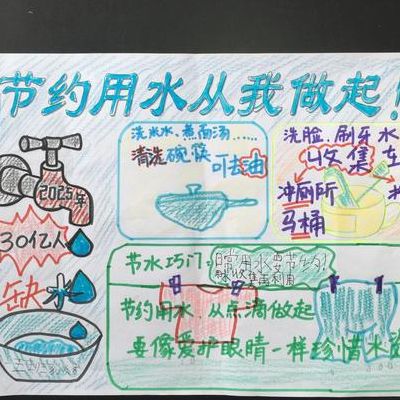 节约用水从我做起!
2025年
30亿人
缺水
洗米水、煮面汤……
清洗碗筷
可去油
洗脸、刷牙水
收集
冲厕所
马桶
节水巧门:
日常用水要节约!
节约用水,从点滴做起
要像爱护眼睛一样珍惜水资